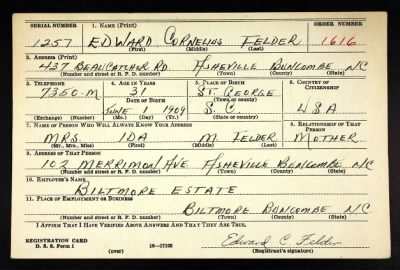 SERIAL NUMBER 1. NAME (Print) ORDER NUMBER
1257 EDWARD CORNELIUS FELDER 1616
(First) (Middle) (Last)
2. ADDRESS (Print)
437 BEAUCATCHER RD. ASHEVILLE BUNCOMBE NC
(Number and street or R. F. D. number) (Town) (County) (State)
3. TELEPHONE 4. AGE IN YEARS 5. PLACE OF BIRTH 6. COUNTRY OF CITIZENSHIP
7350-M 31 ST. GEORGE
DATE OF BIRTH (Town or county)
JUNE 1 1909 S.C. USA
(Exchange) (Number) (Mo.) (Day) (Yr.) (State or country)
7. NAME OF PERSON WHO WILL ALWAYS KNOW YOUR ADDRESS 8. RELATIONSHIP OF THAT PERSON
MRS. IDA M FELDER MOTHER
(Mr., Mrs., Miss) (First) (Middle) (Last)
9. ADDRESS OF THAT PERSON
102 MERRIMON AVE. ASHEVILLE BUNCOMBE, NC
(Number and street or R. F. D. number) (Town) (County) (State)
10. EMPLOYER'S NAME
BILTMORE ESTATE
11. PLACE OF EMPLOYMENT OR BUSINESS
BILTMORE BUNCOMBE N/C
(Number and street or R. F. D. number) (Town) (County) (State)
I AFFIRM THAT I HAVE VERIFIED ABOVE ANSWERS AND THAT THEY ARE TRUE.
REGISTRATION CARD
D. S. S. Form 1 (over) 16—17105 Edward C. Felder
(Registrant's signature)